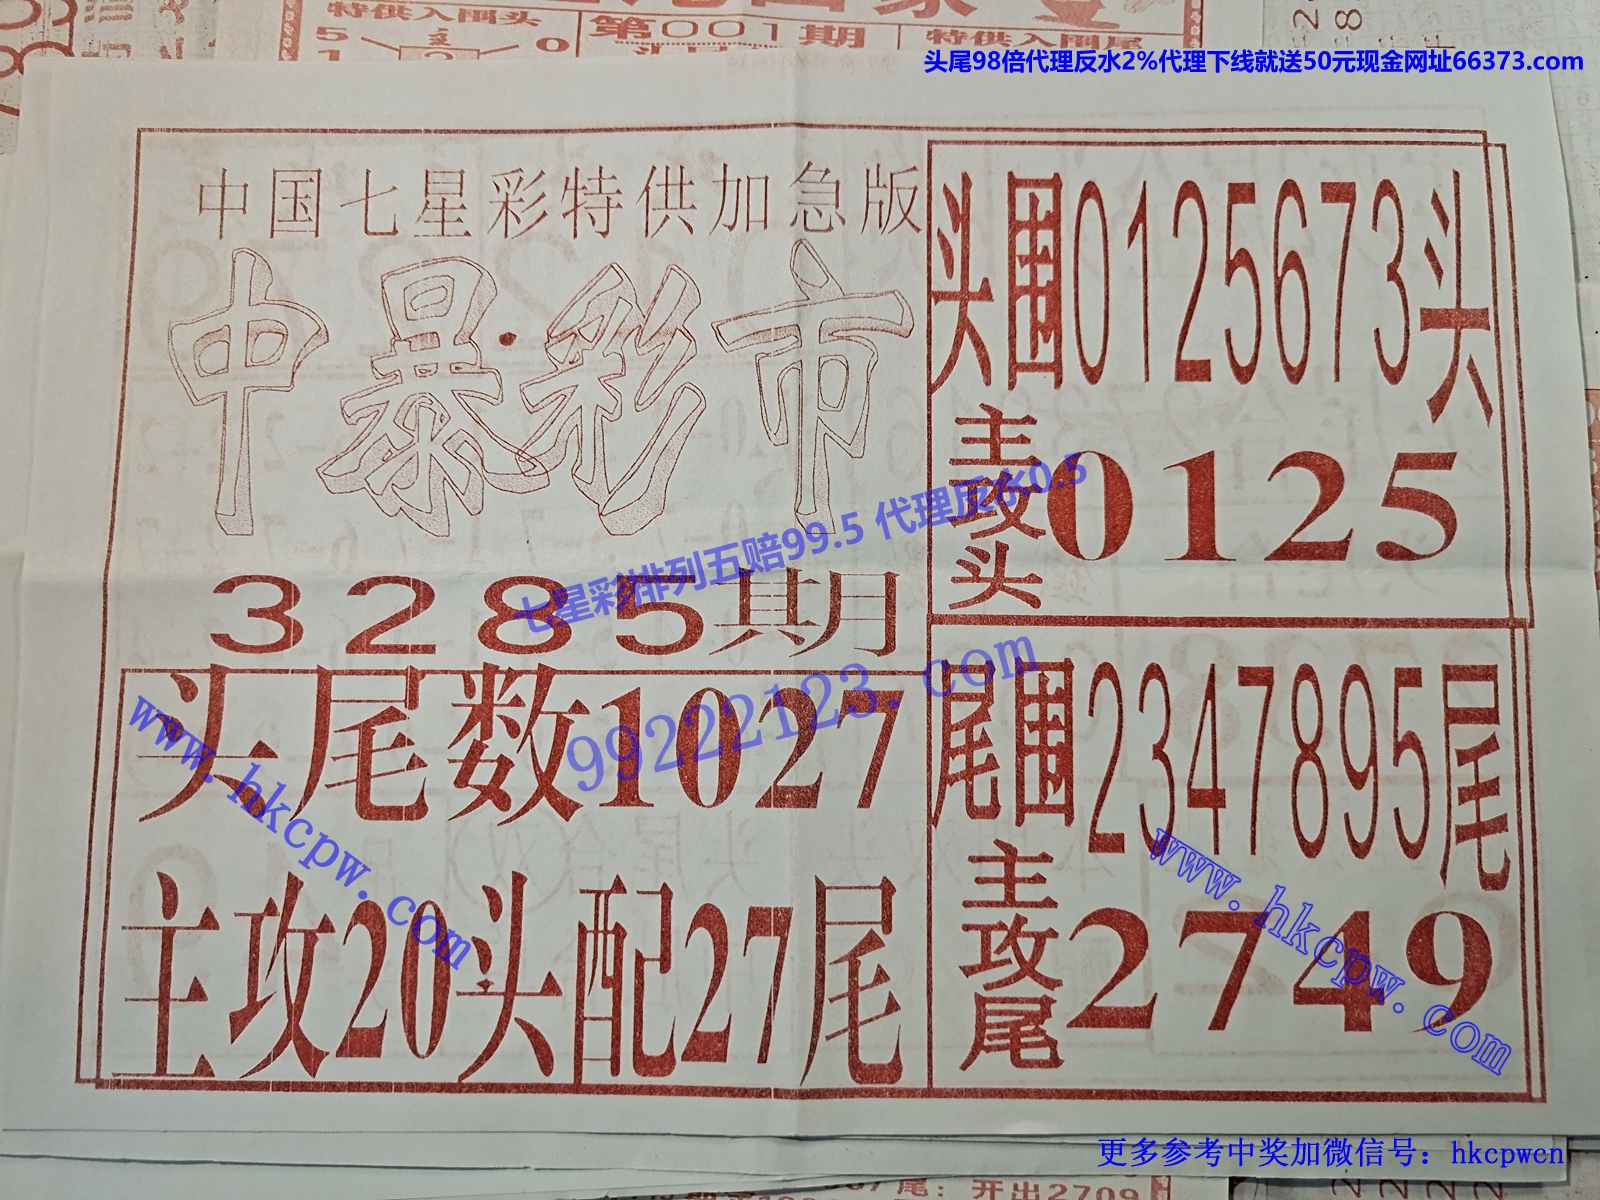 特供入围头
5
0
1
第001期
特供入围尾
头尾98倍代理反水2%代理下线就送50元现金网址66373.com
中国七星彩特供加急版
中暴彩市
3285期
头尾数1027
主攻20头配27尾
头围0125673头
主攻头0125
尾围2347895尾
主攻尾2749
七星彩排列五赔99.5 代理反水0.5
99222123.com
www.hkcpw.com
www.hkcpw.com
更多参考中奖加微信号：hkcpwcn
尾：开出2709